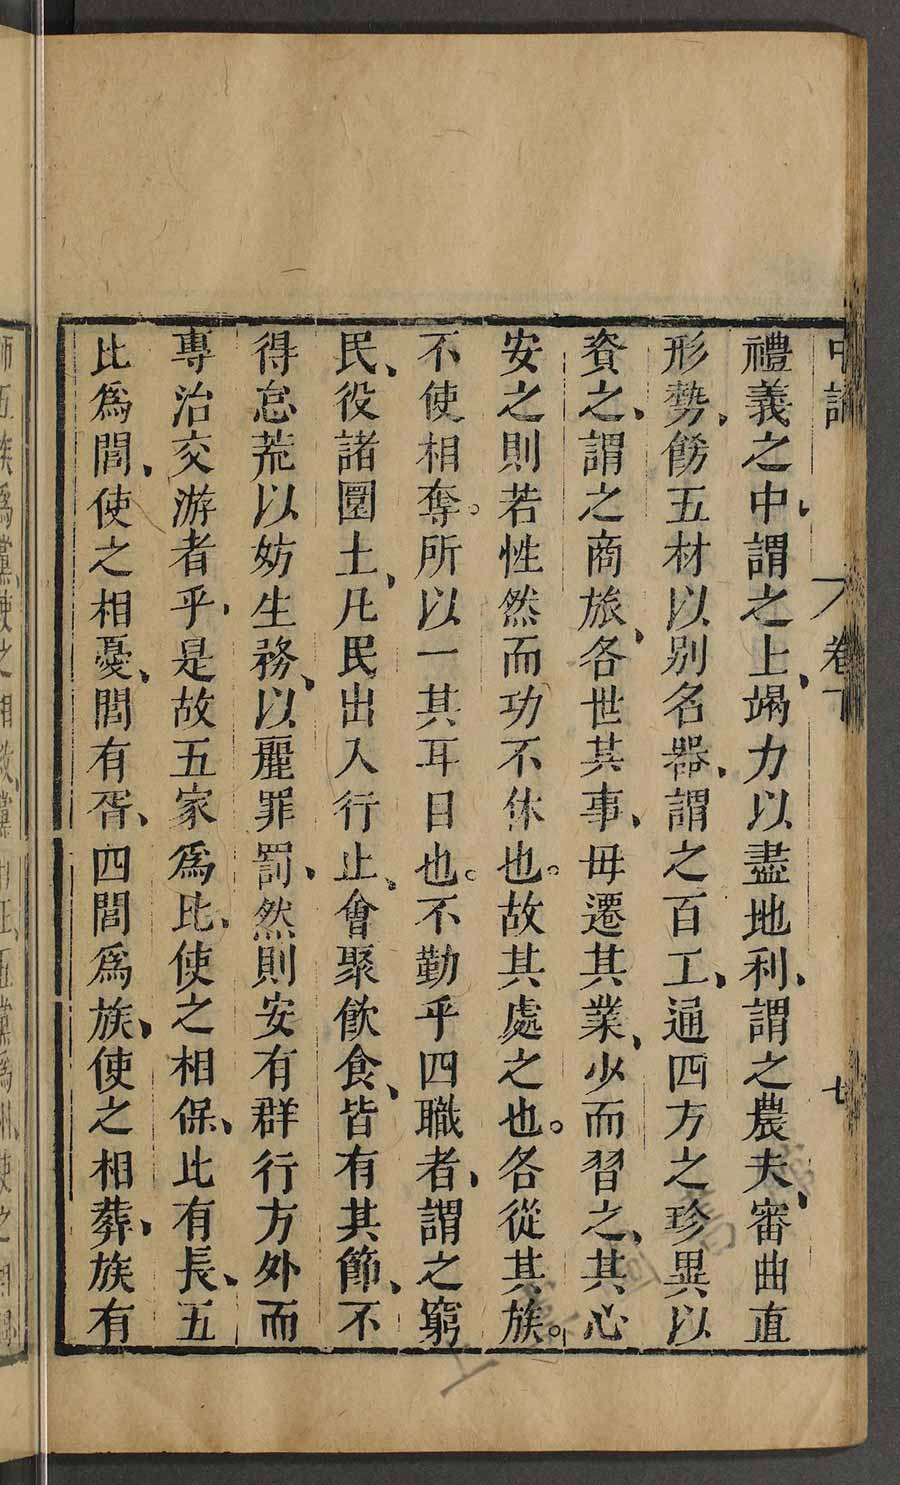 中論 卷下 七
禮義之中、謂之上、竭力以盡地利、謂之農夫、審曲直
形勢、飭五材以别名器、謂之百工、通四方之珍異以
資之、謂之商旅、各世其事、毋遷其業、少而習之、其心
安之則若性然而功不休也。故其處之也。各從其族。
不使相奪。所以一其耳目也。不勤乎四職者、謂之窮
民、役諸圜土、凡民出入行止、會聚飲食、皆有其節、不
得怠荒以妨生務、以麗罪罰、然則安有群行方外而
專治交游者乎、是故五家爲比、使之相保、比有長、五
比爲閭、使之相憂、閭有胥、四閭爲族、使之相葬、族有
師五族爲黨、使之相救、黨